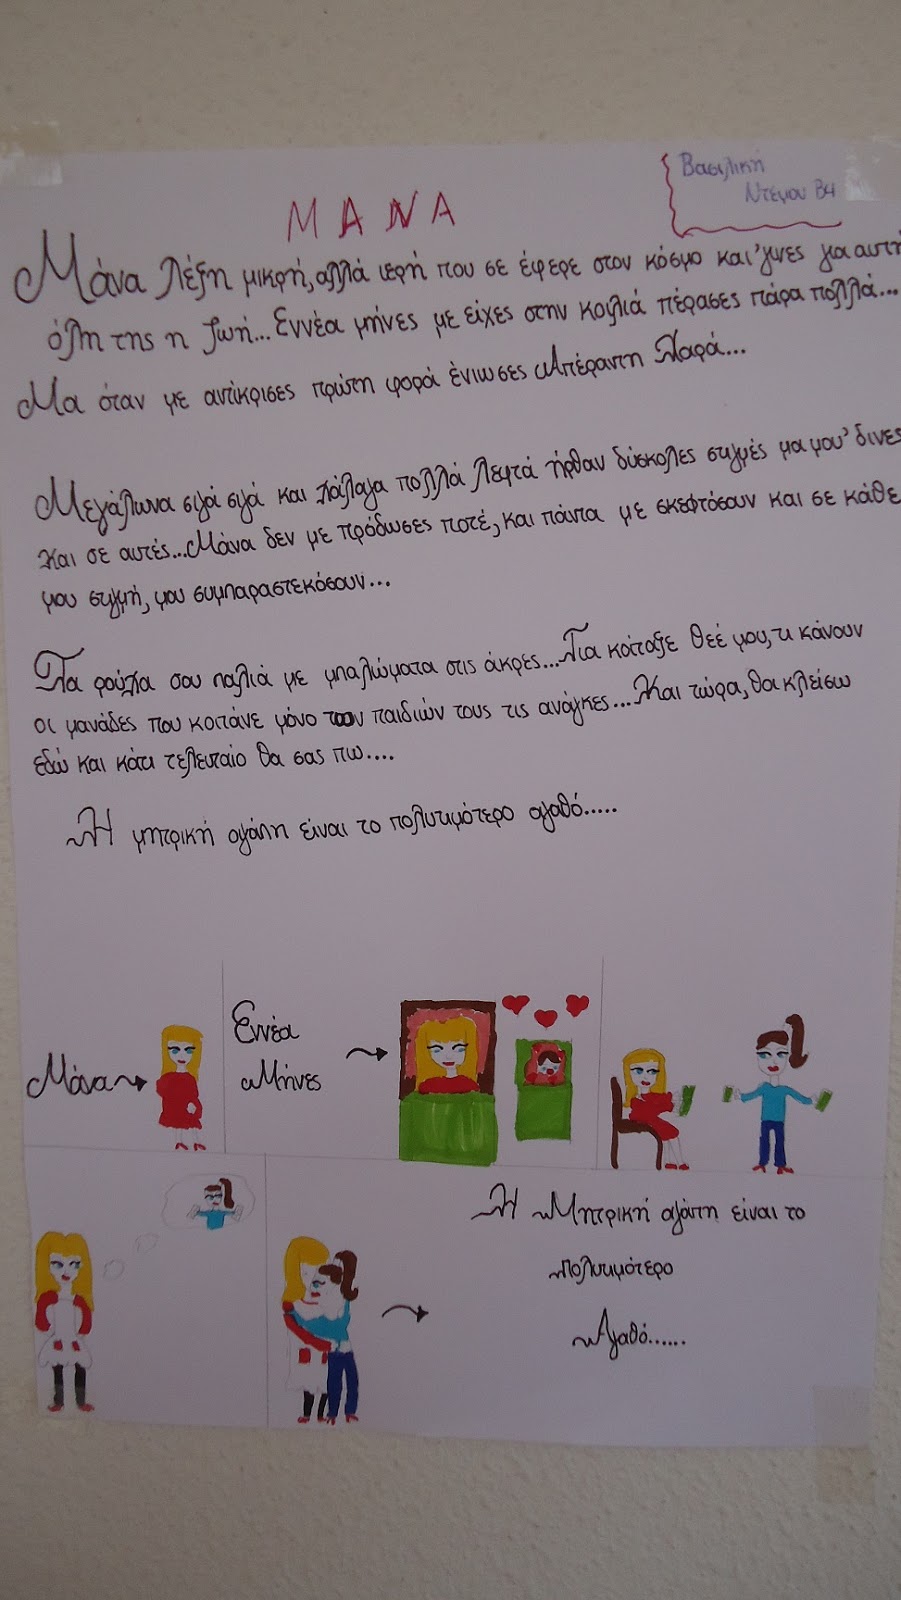 Βασιλική
Ντεμου Β4
ΜΑΝΑ
Μάνα λέξη μικρή, αλλά ιερή που σε έφερε στον κόσμο και 'γινες για αυτή
όλη της η ζωή... Εννέα μήνες με είχες στην κοιλιά πέρασες πάρα πολλά...
Μα όταν με αντίκρισες πρώτη φορά ένιωσες Απέραντη Χαρά...
Μεγάλωνα σιγά σιγά και χάλαγα πολλά λεφτά ήρθαν δύσκολες στιγμές μα μου 'δινες
και σε αυτές... Μάνα δεν με πρόδωσες ποτέ, και πάντα με σκεφτόσουν και σε κάθε
μου στιγμή, μου συμπαραστεκόσουν...
Τα ρούχα σου παλιά με μπαλώματα στις άκρες... Για κοίταξε θεέ μου, τι κάνουν
οι μανάδες που κοιτάνε μόνο των παιδιών τους τις ανάγκες... Και τώρα, θα κλείσω
εδώ και κάτι τελευταίο θα σας πω....
Η μητρική αγάπη είναι το πολυτιμότερο αγαθό.....
Μάνα
Εννέα
Μήνες
Η Μητρική αγάπη είναι το
πολυτιμότερο
Αγαθό......